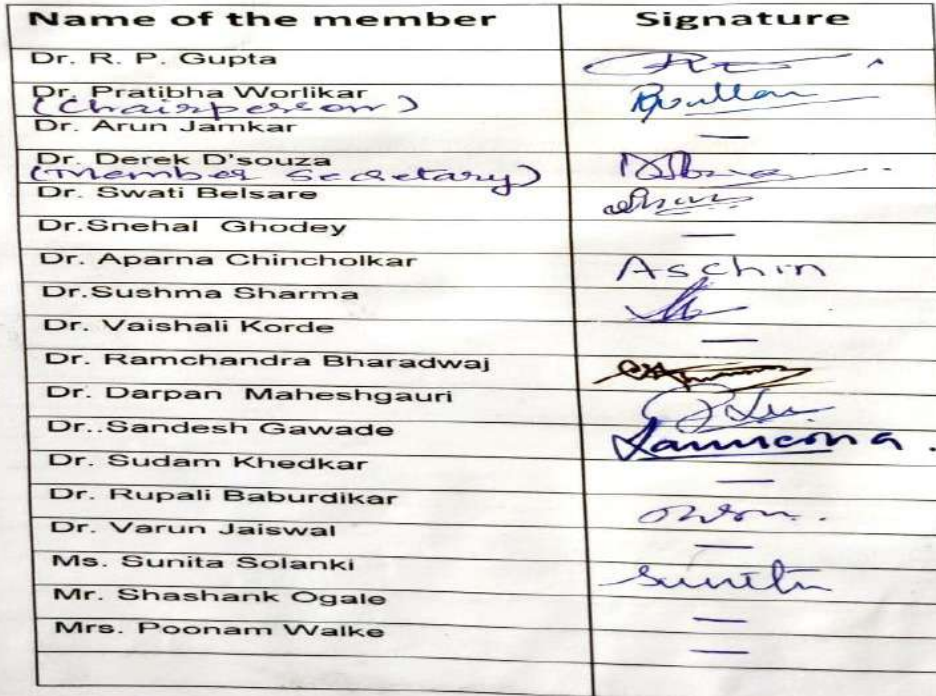 Name of the member Signature
Dr. R. P. Gupta
Dr. Pratibha Worlikar
(Chairperson)
Dr. Arun Jamkar —
Dr. Derek D'souza
(Member Secretary)
Dr. Swati Belsare
Dr.Snehal Ghodey —
Dr. Aparna Chincholkar Aschin
Dr.Sushma Sharma
Dr. Vaishali Korde —
Dr. Ramchandra Bharadwaj
Dr. Darpan Maheshgauri
Dr..Sandesh Gawade
Dr. Sudam Khedkar —
Dr. Rupali Baburdikar
Dr. Varun Jaiswal —
Ms. Sunita Solanki Sunita
Mr. Shashank Ogale —
Mrs. Poonam Walke —